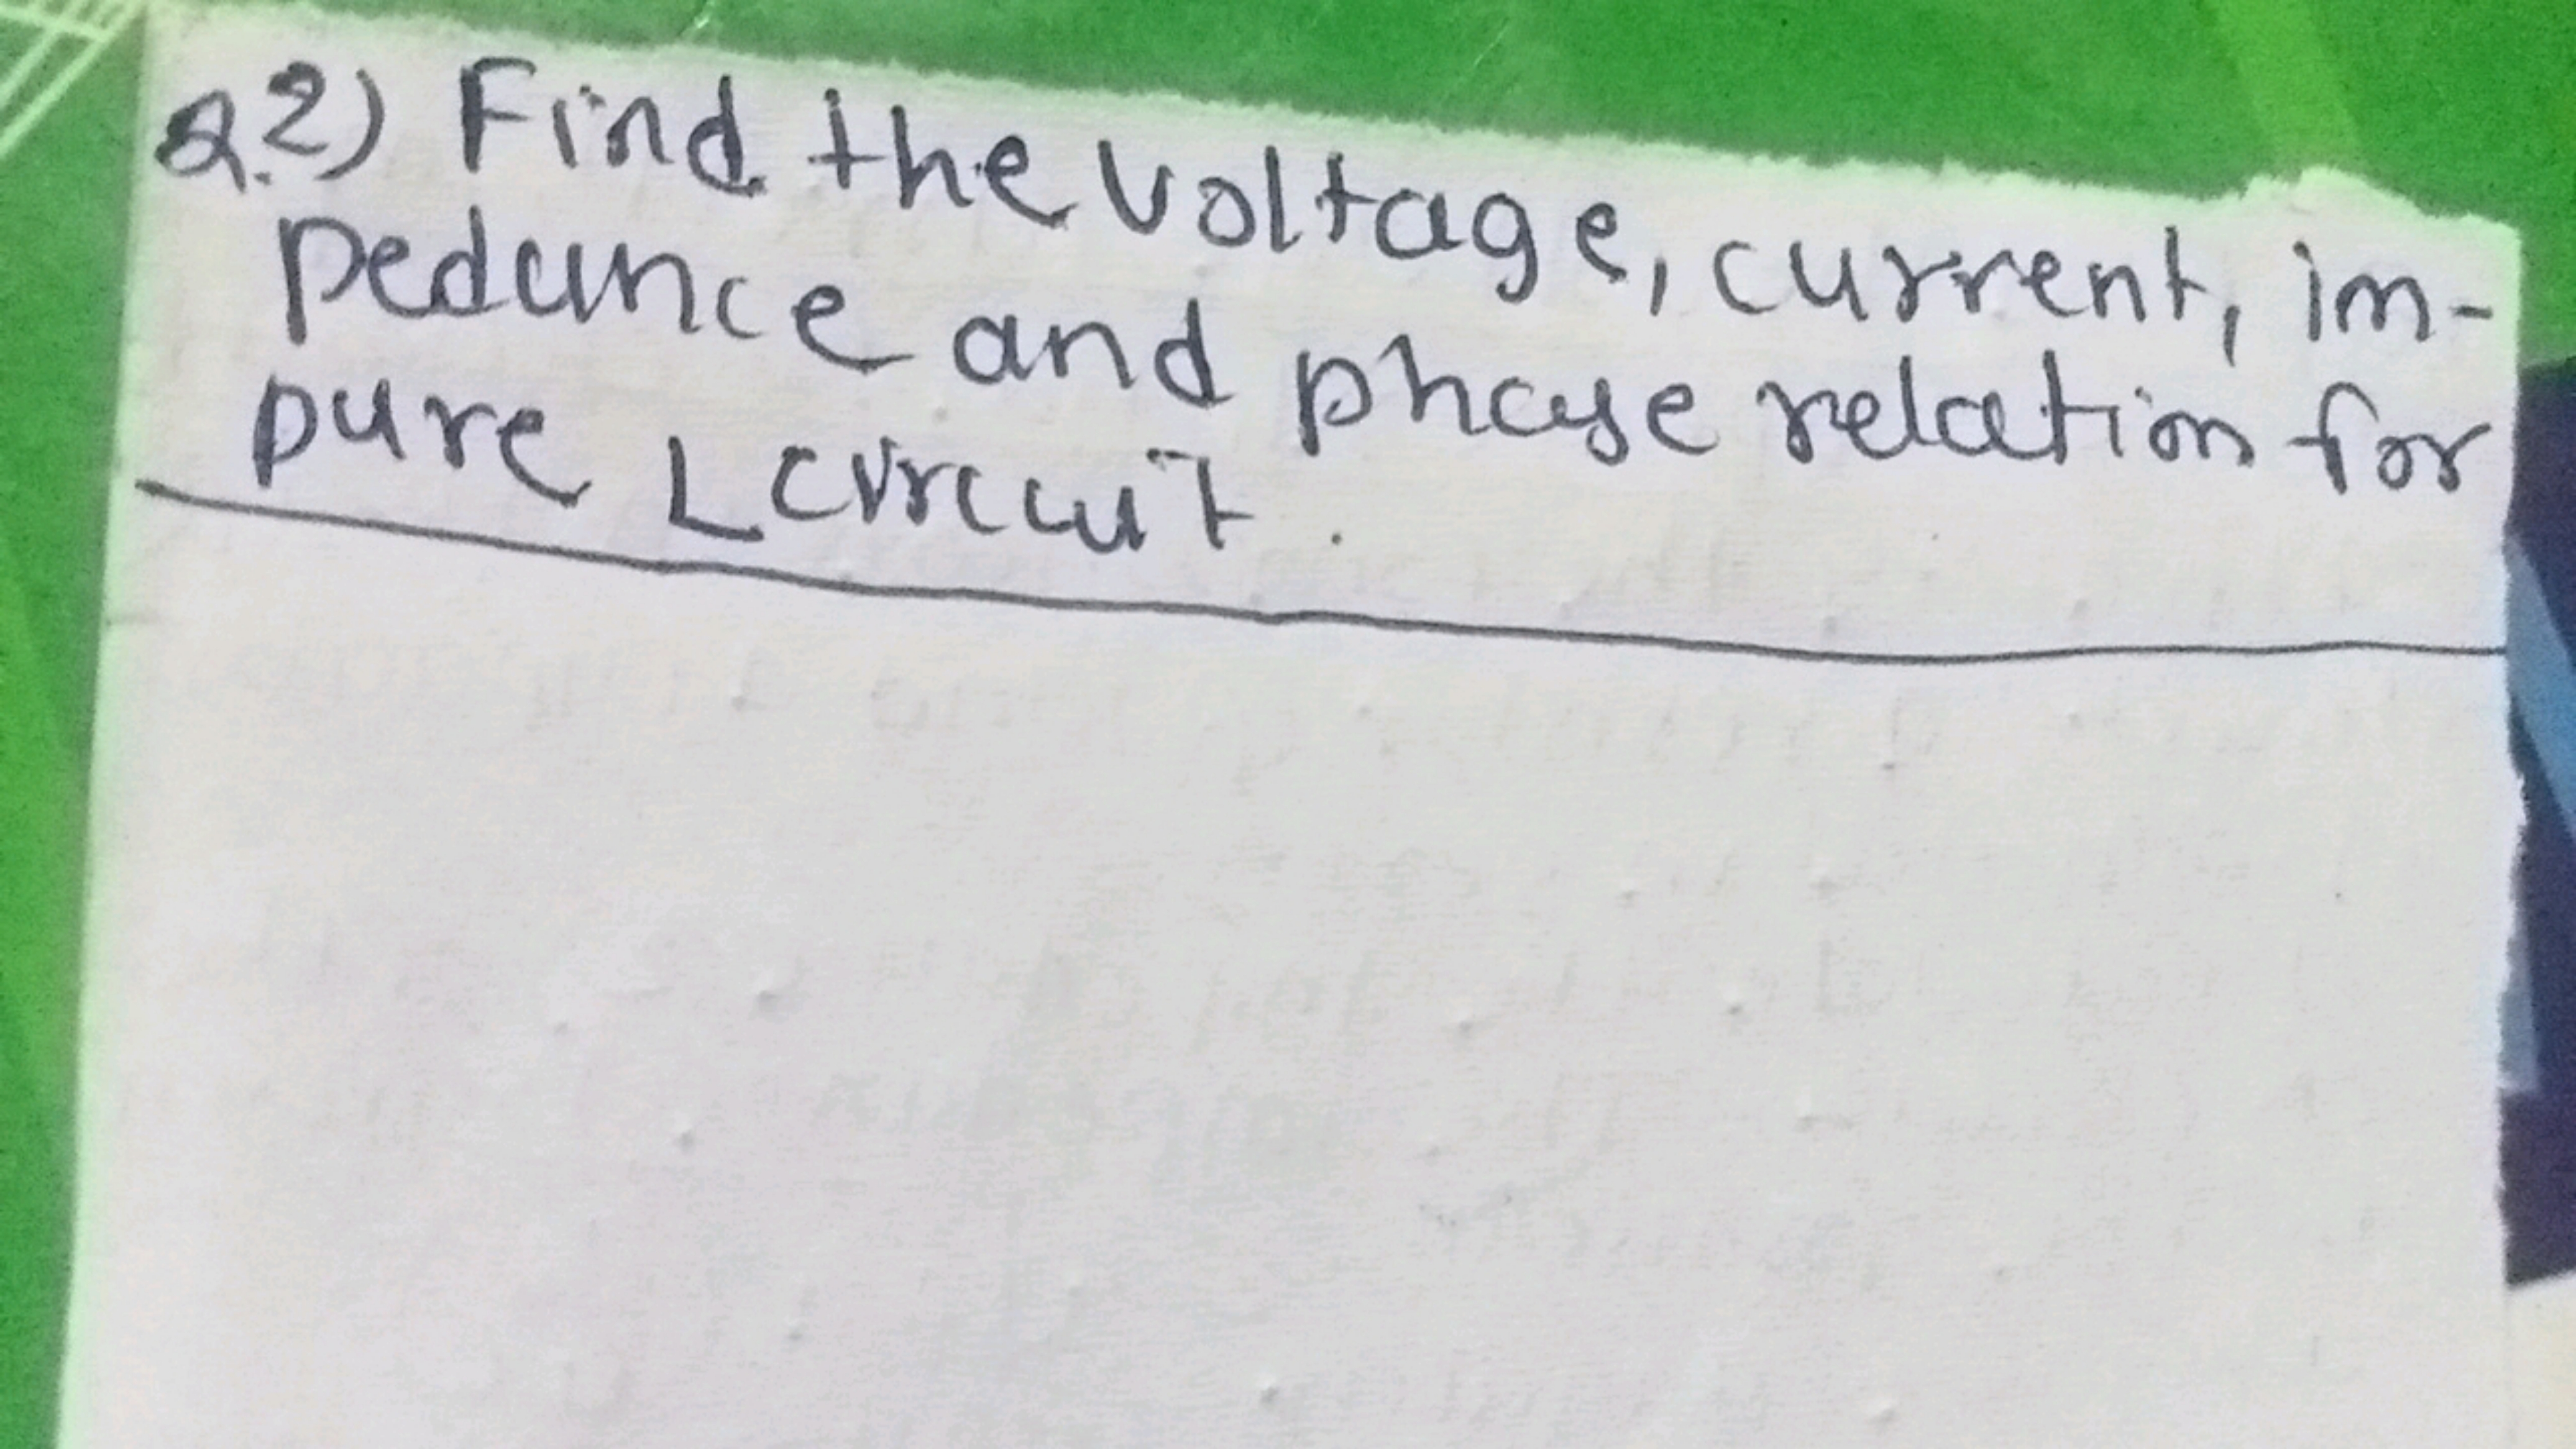 Q.2) Find the voltage, current, im-
pedance and phase relation for
pure L circuit.